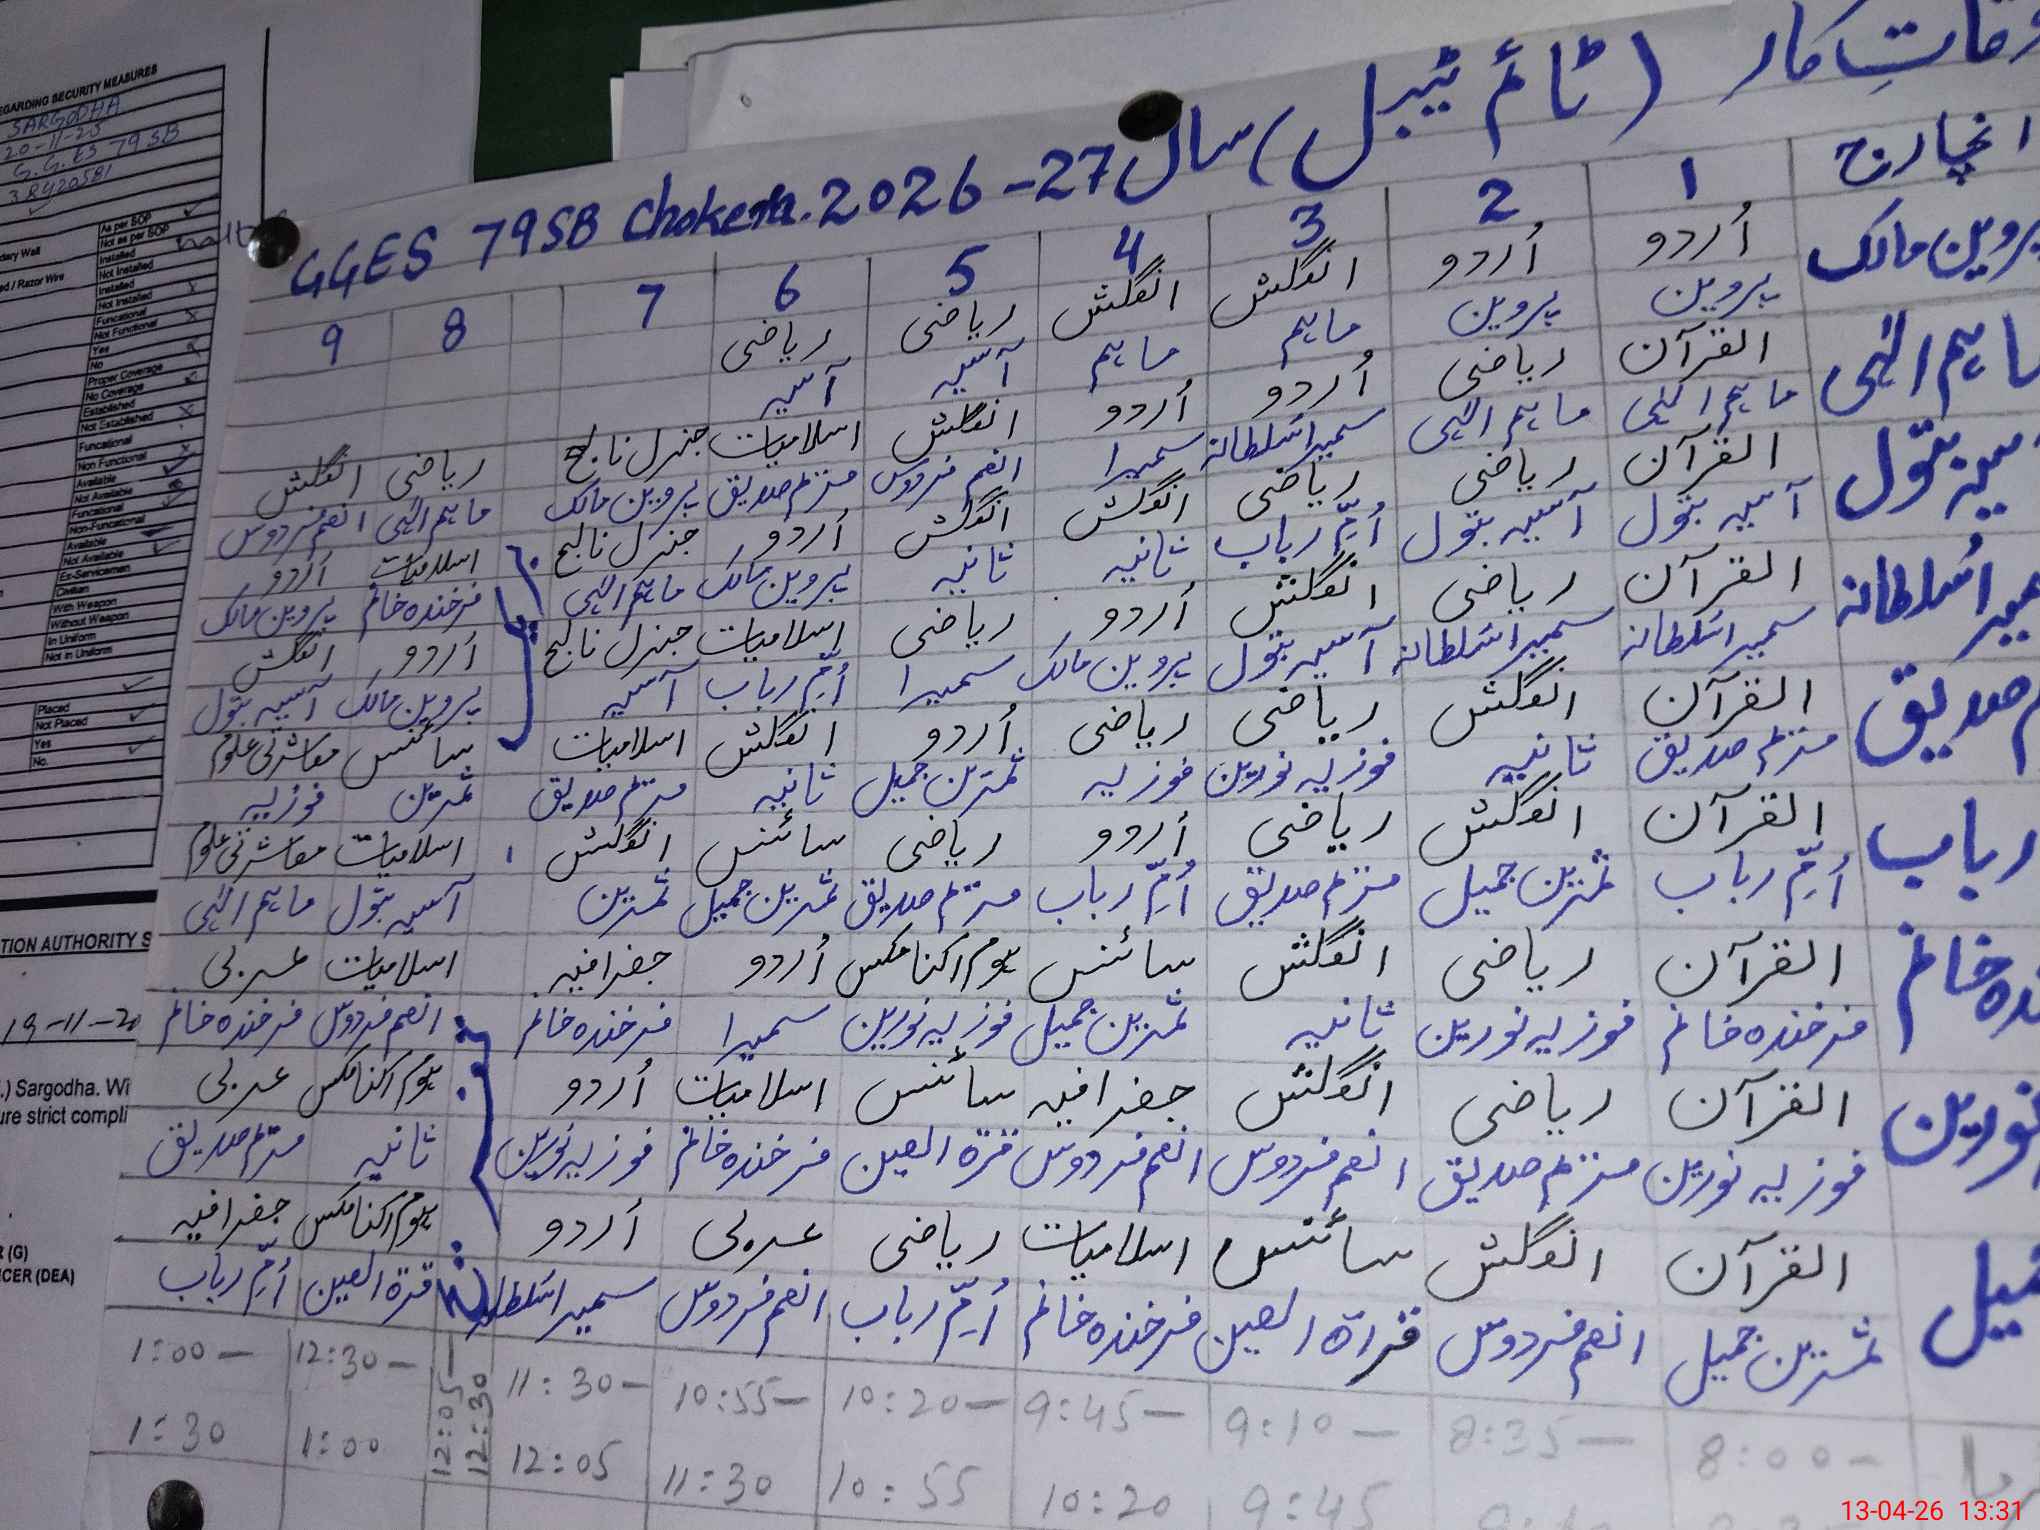 اوقاتِ کار (ٹائم ٹیبل) سال 2026-27 GGES 79SB Chokera.
انچارج 1 2 3 4 5 6 7 8 9
پروین مالک اُردو اُردو انگلش انگلش ریاضی ریاضی
پروین پروین ماہم ماہم آسیہ آسیہ
ماہم الٰہی القرآن ریاضی اُردو اُردو انگلش اسلامیات جنرل نالج ریاضی انگلش
ماہم الٰہی ماہم الٰہی سمیرا سُلطانہ سمیرا انعم فردوس منزہ صدیق پروین مالک ماہم الٰہی انعم فردوس
آسیہ بتول القرآن ریاضی ریاضی انگلش انگلش اُردو جنرل نالج اسلامیات اُردو
آسیہ بتول آسیہ بتول اُمِّ رباب ثانیہ ثانیہ پروین مالک ماہم الٰہی فرخندہ خانم پروین مالک
سمیرا سُلطانہ القرآن ریاضی انگلش اُردو ریاضی اسلامیات جنرل نالج اُردو انگلش
سمیرا سُلطانہ سمیرا سُلطانہ آسیہ بتول پروین مالک سمیرا اُمِّ رباب آسیہ پروین مالک آسیہ بتول
صدیق القرآن انگلش ریاضی ریاضی اُردو انگلش اسلامیات سائنس معاشرتی علوم
منزہ صدیق ثانیہ فوزیہ نورین فوزیہ ثمرین جمیل ثانیہ منزہ صدیق ثمرین فوزیہ
رباب القرآن انگلش ریاضی اُردو ریاضی سائنس انگلش اسلامیات معاشرتی علوم
اُمِّ رباب ثمرین جمیل منزہ صدیق اُمِّ رباب منزہ صدیق ثمرین جمیل ثمرین آسیہ بتول ماہم الٰہی
خانم القرآن ریاضی انگلش سائنس ہوم اکنامکس اُردو جغرافیہ اسلامیات عربی
فرخندہ خانم فوزیہ نورین ثانیہ ثمرین جمیل فوزیہ نورین سمیرا فرخندہ خانم انعم فردوس فرخندہ خانم
نورین القرآن ریاضی انگلش جغرافیہ سائنس اسلامیات اُردو ہوم اکنامکس عربی
فوزیہ نورین منزہ صدیق انعم فردوس انعم فردوس قرۃ العین فرخندہ خانم فوزیہ نورین ثانیہ منزہ صدیق
جمیل القرآن انگلش سائنس اسلامیات ریاضی عربی اُردو ہوم اکنامکس جغرافیہ
ثمرین جمیل انعم فردوس قراۃ العین فرخندہ خانم اُمِّ رباب انعم فردوس سمیرا سُلطانہ قرۃ العین اُمِّ رباب
8:00- 8:35- 9:10- 9:45- 10:20- 10:55- 11:30- 12:05- 12:30- 1:00-
9:45 10:20 10:55 11:30 12:05 12:30 1:00 1:30
EGARDING SECURITY MEASURES
SARGODHA
20-11-25
G.G.ES 79 SB
38420581
As per SOP
Not as per SOP
dary Wall Installed
Not Installed
ed / Razor Wire Installed
Not Installed
Funcational
Not Functional
Yes
No
Proper Coverage
No Coverage
Established
Not Established
Funcational
Non Functional
Available
Not Available
Funcational
Non-Funcational
Available
Not Available
Ex-Servicemen
Civilian
With Weapon
Without Weapon
In Uniform
Not in Uniform
Placed
Not Placed
Yes
No.
TION AUTHORITY S
19-11-20
.) Sargodha. Wi
ure strict compli
R (G)
ICER (DEA)
13-04-26 13:31